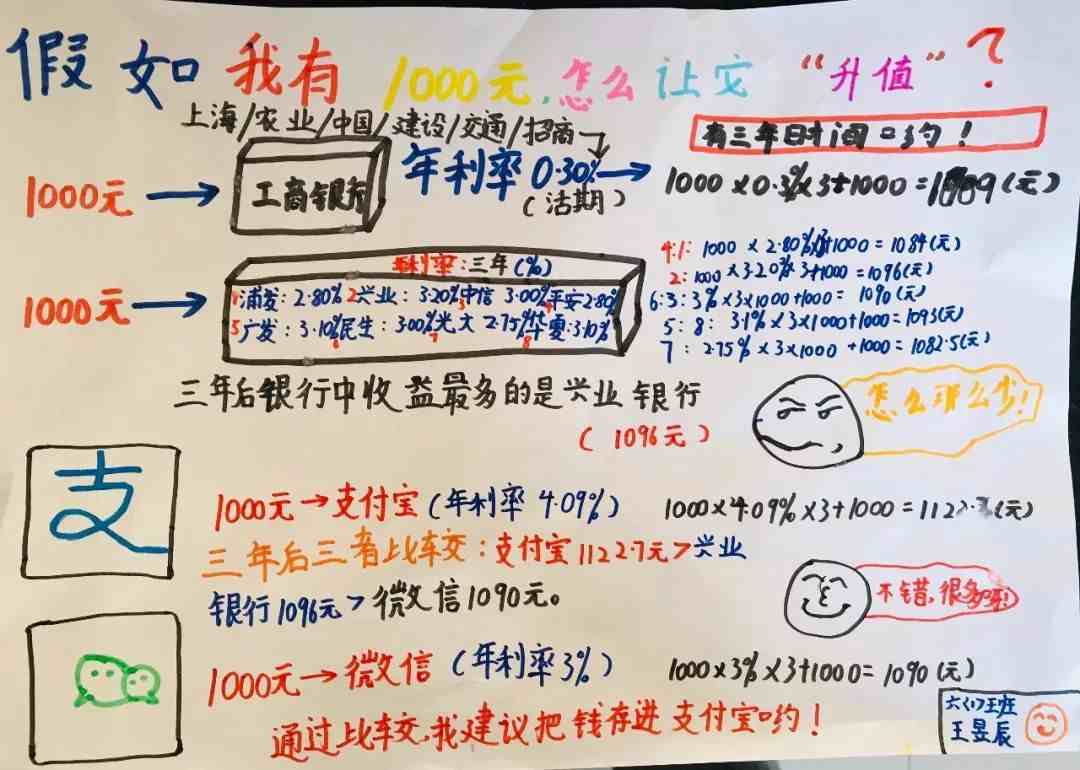 假如我有1000元,怎么让它“升值”?
上海/农业/中国/建设/交通/招商
有三年时间哟!
1000元
工商银行
年利率0.30%
(活期)
1000×0.3%×3+1000=1009(元)
年利率:三年(%)
1000元
1浦发:2.80% 2兴业:3.20% 3中信 3.00% 4平安2.80%
5广发:3.10% 6民生:3.00% 7光大 2.75% 8华夏:3.10%
4:1:1000×2.80%×3+1000=1084(元)
2:1000×3.20%×3+1000=1096(元)
6:3:3%×3×1000+1000=1090(元)
5:8:3.1%×3×1000+1000=1093(元)
7:2.75%×3×1000+1000=1082.5(元)
三年后银行中收益最多的是兴业银行
(1096元)
怎么那么少!
支
1000元→支付宝(年利率4.09%)
1000×4.09%×3+1000=1122.7(元)
三年后三者比较:支付宝1122.7元>兴业
银行1096元>微信1090元。
不错,很多啦!
1000元→微信(年利率3%)
1000×3%×3+1000=1090(元)
通过比较,我建议把钱存进支付宝哟!
六(1)班
王昱辰